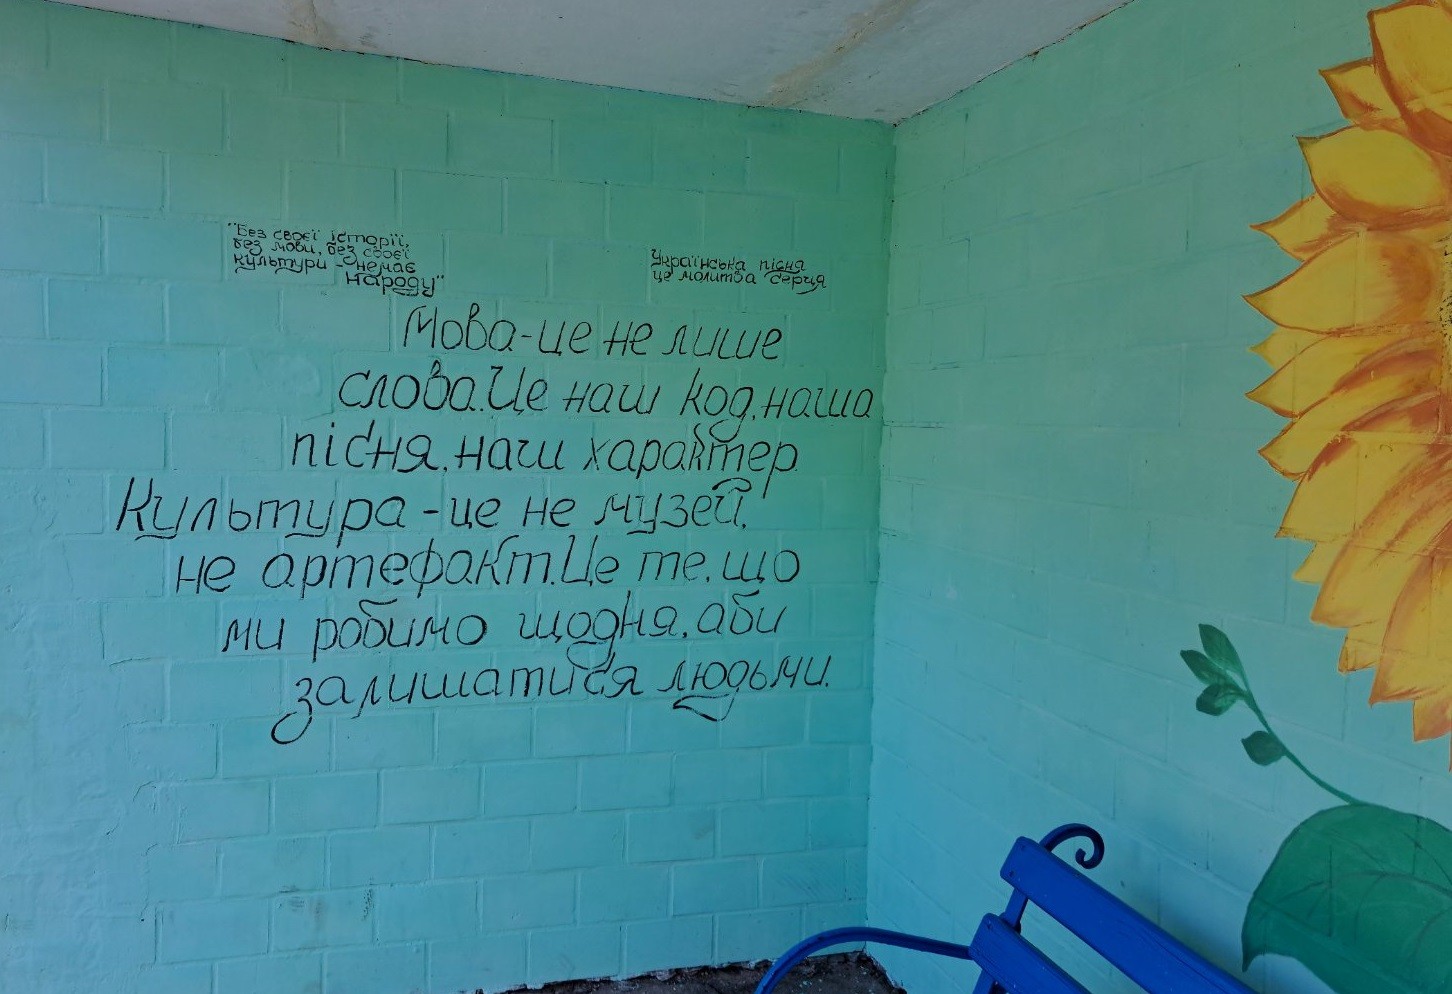 "Без своєї історії,
без мови, без своєї
культури - немає
народу"
Українська пісня
це молитва серця
Мова-це не лише
слова.Це наш код, наша
пісня, наш характер.
Культура-це не музей,
не артефакт.Це те, що
ми робимо щодня, аби
залишатися людьми.